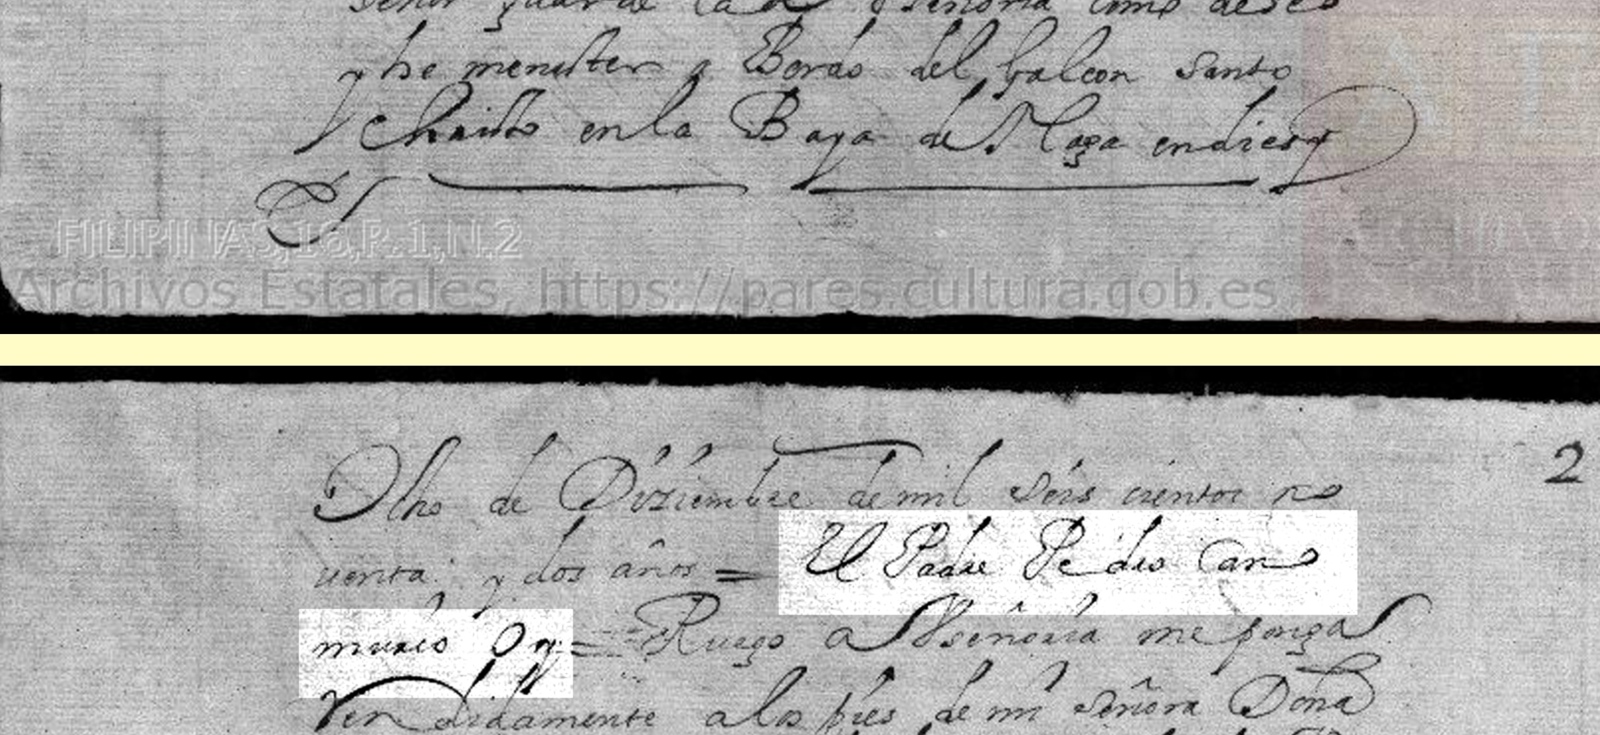 señor guarde la d Vseñoria como deseo
y he menester a Bordo del galeon Santo
Christo en la Baya de Naga en dies y
FILIPINAS,16,R.1,N.2
Archivos Estatales, https://pares.cultura.gob.es
2
Ocho de Diziembre de mil seis cientos no
uenta y dos años = El Padre Pedro Cano
murio Oy = Ruego a Vseñoria me ponga
Rendidamente a los pies de mi señora Doña